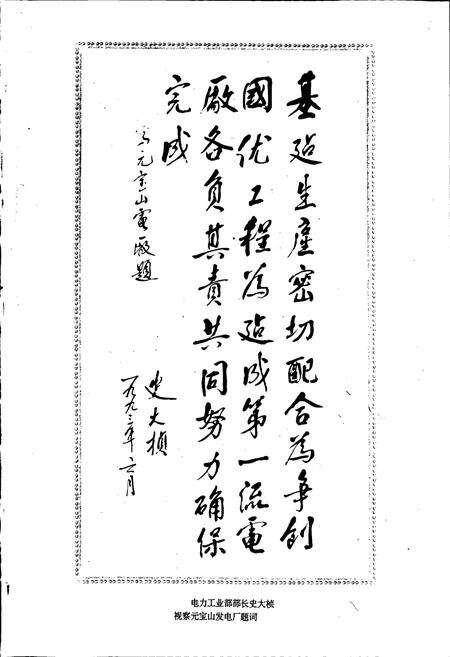 基建生產密切配合為争創
國优工程為建成第一流電
廠各負其責共同努力确保
完成
為元宝山電廠題
史大楨
一九九三年六月
电力工业部部长史大桢
视察元宝山发电厂题词